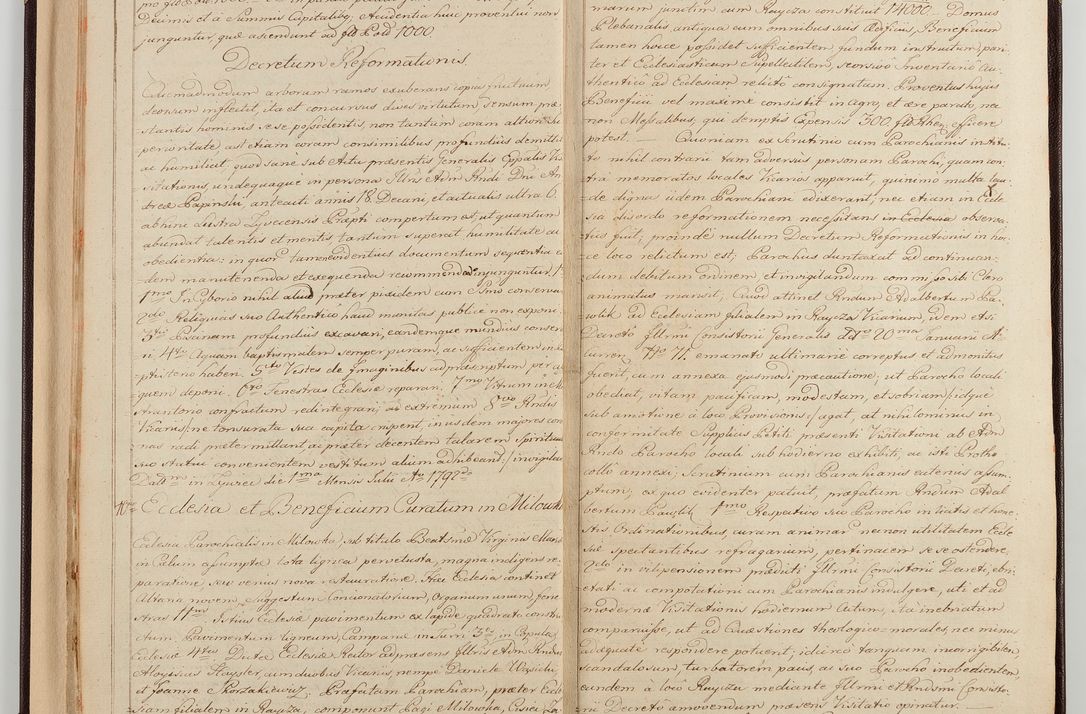 Decimis et à Summis Capitalibus, Accidentia huic proventui non
junguntur, quæ ascendunt ad fl Pol 1000
Decretum Reformationis.
Quemadmodum arborum ramos exuberans copia fructuum
deorsum inflectit, ita et concursus dives virtutum sensum præ-
stantis hominis sese possidentis, non tantum coram altiori Su
perioritate ast etiam coram consimilibus profundius demittit
ac humiliat, quod sane sub Actu præsentis Generalis Eppalis Vi
sitationis, undequaque in persona Illris Adm Rndi Dni An
dreæ Papinski, anteacti annis 18. Decani, et actualis ultra 6.
abhinc lustra Zyvecensis Præpti compertum est, ut quantum
abundat talentis et meritis tantum superat humilitate ac
obedientia: in quor tamen evidentius documentum sequentia e
dem manutenenda et exequenda recommenda injunguntur.
1mo In Cyborio nihil aliud præter pixidem cum Ssmo conserva
2do Reliquias suo Authentico haud munitas publice non exponi.
3tio Piscinam profundius excavari, eandemque mundius conser
ri 4to Aquam baptismalem semper puram, ac sufficientem in
ptisterio haberi. 5to Vestes de Imaginibus ad præscriptum per
quem deponi. 6to Fenestras Ecclesiæ reparari. 7mo Vitrum in
strantorio confractum redintegrari, ac extremum 8vo Rndis
Vicariis, ne tonsurata sua capita crispent, in usdem majores con
nas radi prætermittant, ac præter decentem talarem spiritua
suo statui convenientem vestitum alium adhibeant / invigiletur
Datt in Zyviec die 1ma Mensis Julii Ao 1792do
10mo Ecclesia et Beneficium Curatum in Milowka
Ecclesia Parochialis in Milowka, sub titulo Beatismæ Virginis Mariæ
in Cælum assumptæ tota lignea pervetusta, magna indigens re
paratione seu verius nova restauratione. Hæc Ecclesia continet
Altaria novem, Suggestum Concionatorium, Organum unum, fene
stras 11m Istius Ecclesiæ pavimentum ex lapide quadrato constru
ctum, Pavimentum ligneum, Campanæ in Turri 3es, in Cupula
Ecclesiæ 4tæ Dictæ Ecclesiæ Rector ad præsens Illris Adm Rndus
Aloysius Stayser, cum duobus Vicariis, nempe Daniele Wasicki
et Joanne Skorzakiewicz, Præfatam Parochiam, præter Eccle
siam filialem in Rayczą, componunt Pagi Milowka, Cisiec, Ża
marum junctim cum Rayczą constituit 14000. Domus
Plebanalis antiqua cum omnibus suis Ædificiis, Beneficium
tamen hocce possidet sufficientem fundum instructum, pari
ter et Ecclesiasticam Supellectilem, seorsivo Inventario Au
thentico ad Ecclesiam relicto consignatam. Proventus hujus
Beneficii vel maxime consistit in agris, et ære parato, nec
non Messalibus, qui demptis Expensis 300. fl Rhen efficere
potest. Quoniam ex Scrutinio cum Parochianis institu
to nihil contrarii tam adversus personam Parochi, quam con
tra memoratos locales Vicarios apparuit, quinimo multa lau
de dignæ iidem Parochiani edixerant; nec etiam in Eccle
sia disordo reformationem necessitans in Ecclesia observa
tus fuit; proinde nullum Decretum Reformationis in ho
ce loco relictum est; Parochus duntaxat ad continuan
dum debitum ordinem, et invigilandum commisso sibi Clero
animatus mansit; Quod attinet Rndum Adalbertum Pa
wlik ad Ecclesiam filialem in Raycza Vicarium, idem etsi
Decreto Illrmi Consistorii Generalis ddto 20ma Januarii A.
curren. No 71. emanato ultimarie correptus et admonitus
fuerit, cum annexa ejusmodi præcautione; ut Parocho locali
obediat, vitam pacificam, modestam, et sobriam / idque
sub amotione à loco Provisionis / agat, at nihilominus in
conformitate Supplicis Petiti præsenti Visitationi ab Adm
Rndo Parocho locali sub hodierno exhibiti, ac isto Protho
collo annexi; Scrutinium cum Parochianis eatenus assum
ptum; ex quo evidenter patuit, præfatum Rndum Adal
bertum Pawlik, 1mo Respectivo suo Parocho in licitis et hone
stis Ordinationibus, curam animar necnon utilitatem Eccle
siæ spectantibus refragarium, pertinacem se se ostendere,
2do in vilipensionem prædicti Illrmi Consistorii Decreti, ebri
etati ac compotationi cum Parochianis indulgere, uti et ad
modernæ Visitationis hodiernum Actum, ita inebriatum
comparuisse, ut ad Quæstiones theologico morales, nec minus
adæquate respondere potuerit; idcirco tanquam incorrigibilem
scandalosum, turbatorem pacis, ac suo Parocho inobedientem,
eundem à loco Rayczą mediante Illrmi et Rndsmi Consisto
rii Decreto amovendum præsens Visitatio opinatur.